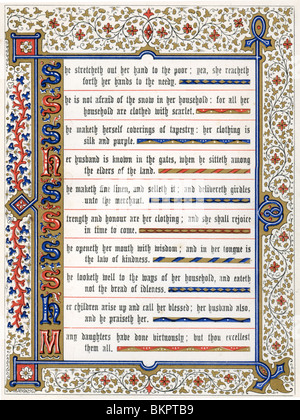 She stretcheth out her hand to the poor; yea, she reacheth
forth her hands to the needy.
She is not afraid of the snow in her household: for all her
household are clothed with scarlet.
She maketh herself coverings of tapestry; her clothing is
silk and purple.
Her husband is known in the gates, when he sitteth among
the elders of the land.
She maketh fine linen, and selleth it; and delivereth girdles
unto the merchant.
Strength and honour are her clothing; and she shall rejoice
in time to come.
She openeth her mouth with wisdom; and in her tongue is
the law of kindness.
She looketh well to the ways of her household, and eateth
not the bread of idleness.
Her children arise up and call her blessed; her husband also,
and he praiseth her.
Many daughters have done virtuously; but thou excellest
them all.
alamy stock photo
BKPTB9
www.alamy.com